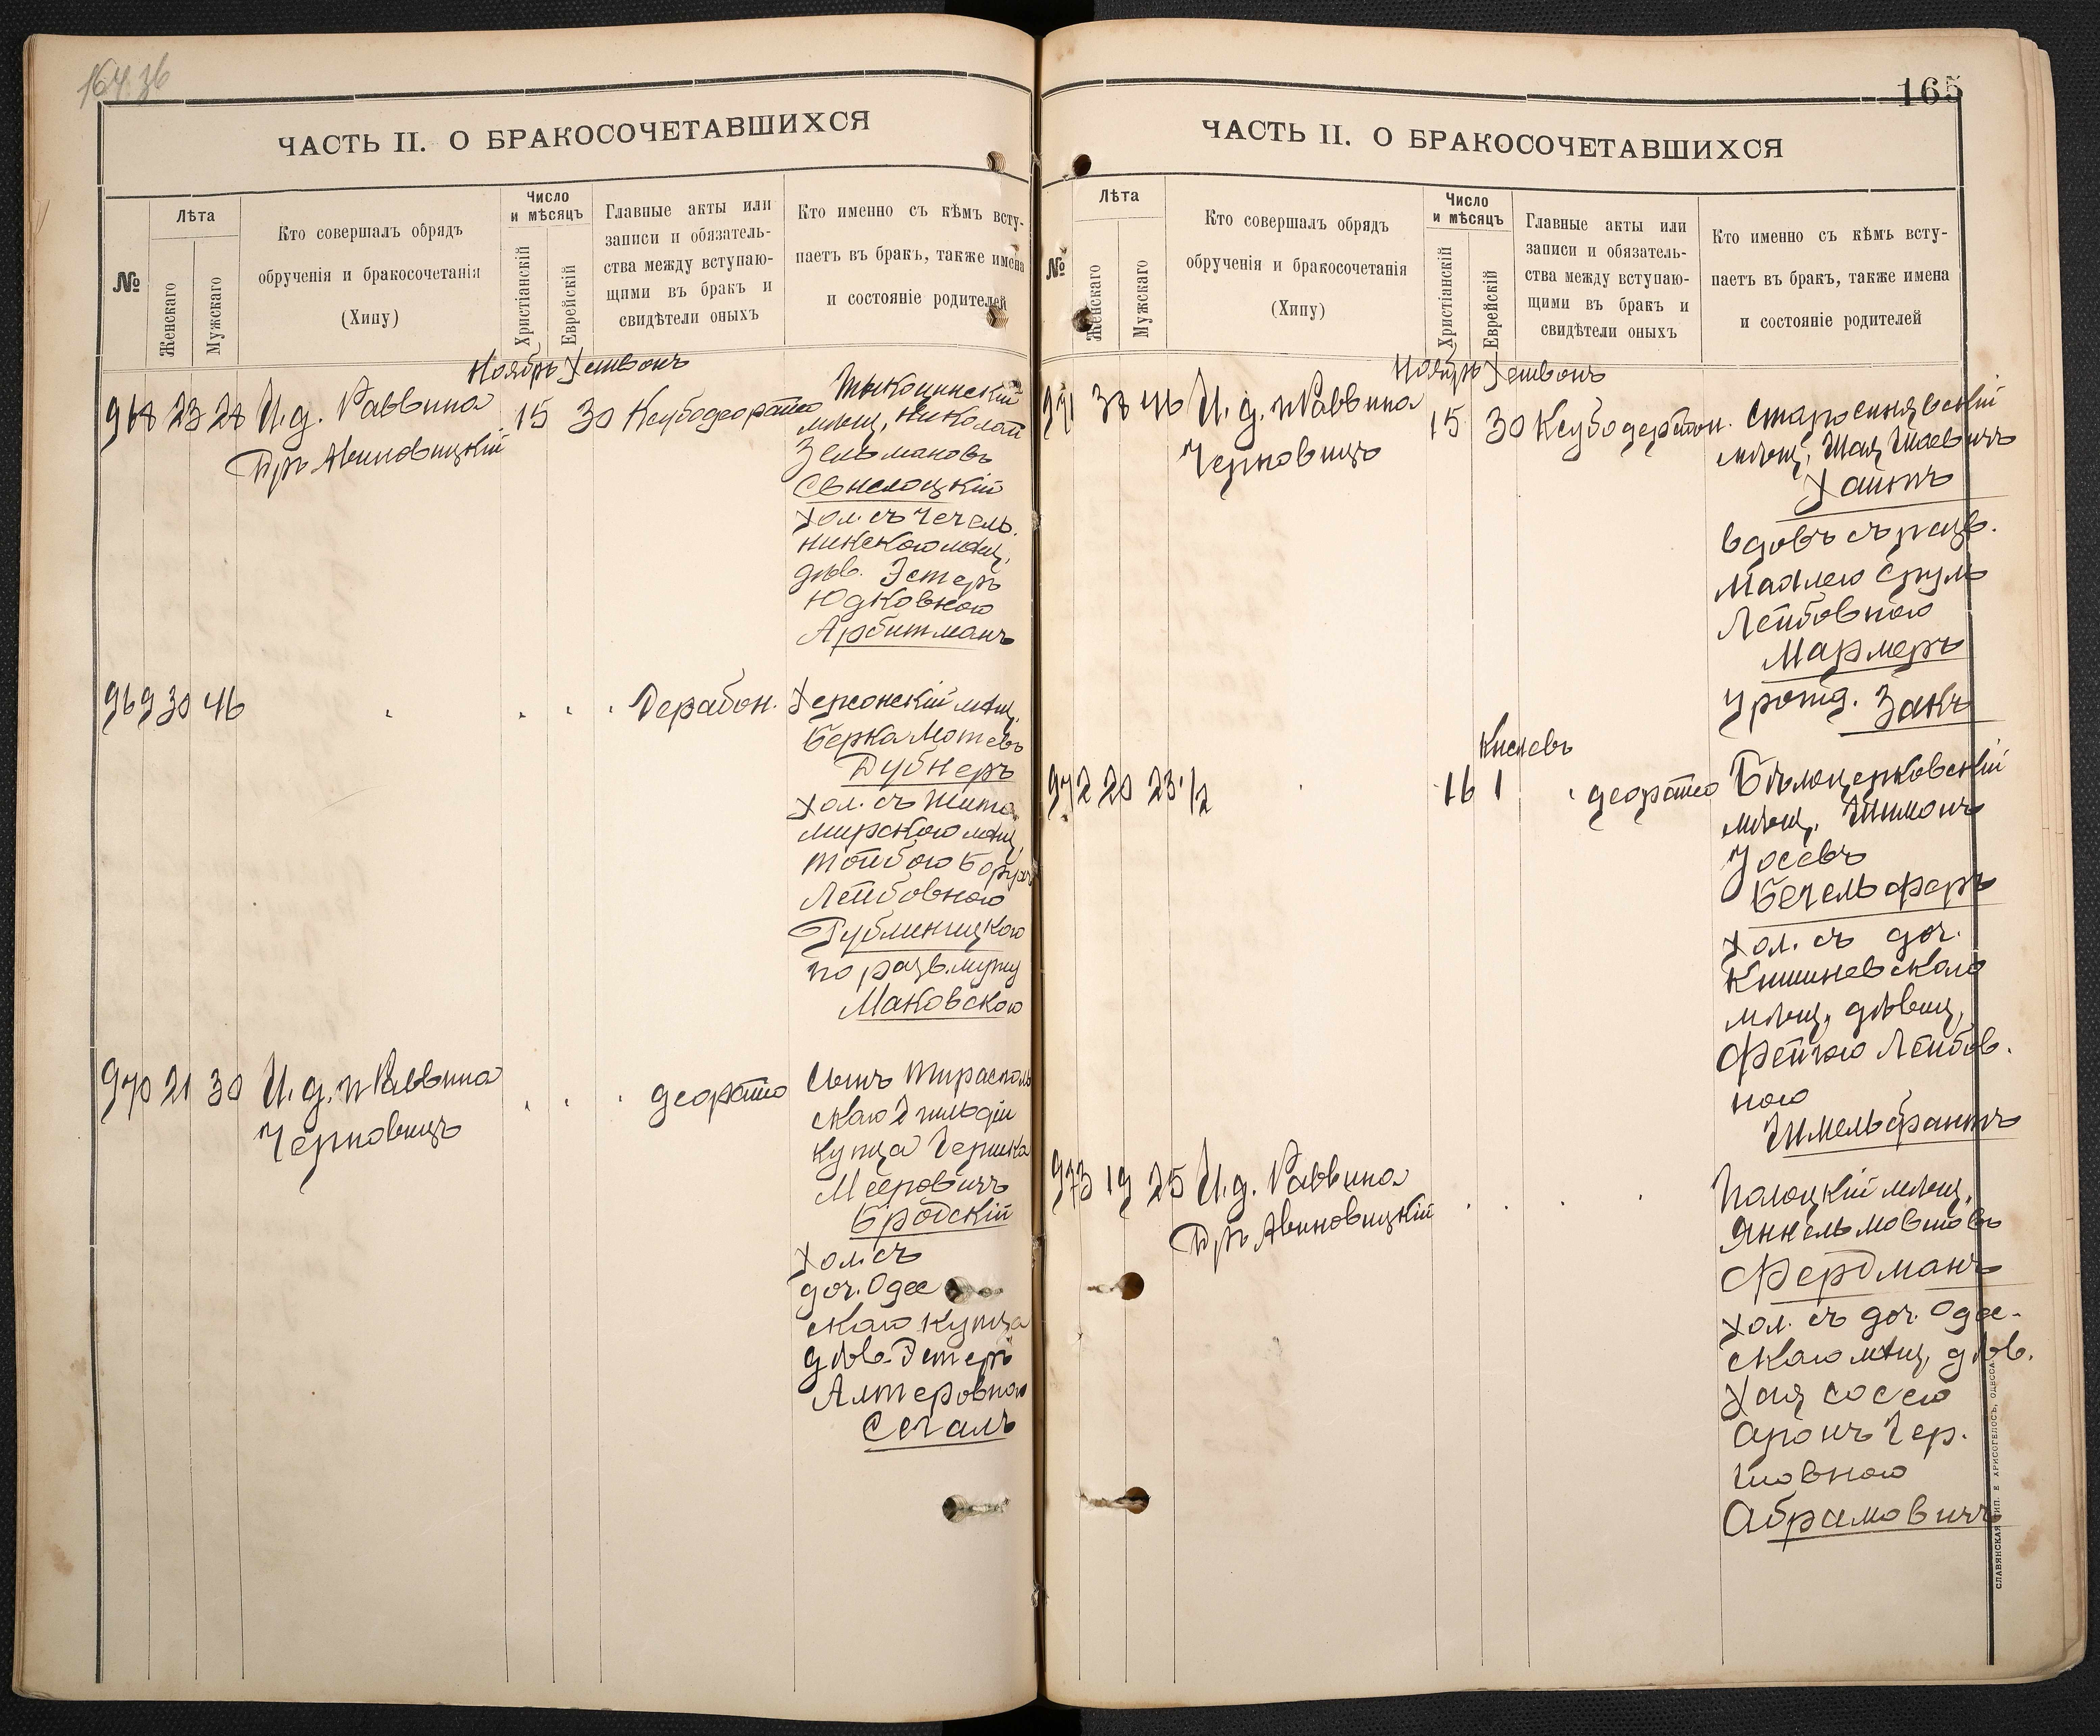 164.36
ЧАСТЬ II. О БРАКОСОЧЕТАВШИХСЯ
№
Лѣта
Женскаго
Мужскаго
Кто совершалъ обрядъ
обрученія и бракосочетанія
(Хипу)
Число
и мѣсяцъ
Христіанскій
Еврейскій
Главные акты или
записи и обязатель-
ства между вступаю-
щими въ бракъ и
свидѣтели оныхъ
Кто именно съ кѣмъ всту-
паетъ въ бракъ, также имена
и состояніе родителей
Ноябрь Хешвонъ
968 23 28 И.д. Раввина
Др. Авиновицкій
15 30
Тыкоцинскій
мѣщ. Николай
Зельмановъ
Свислоцкій
хол. съ Чечель-
никскою мѣщ.
дѣв. Эстеръ
Юдковною
Арбитманъ
969 30 46
Дерабон.
Херсонскій мѣщ.
Берка Мотевъ
Дубнеръ
хол. съ Жито-
мирскою мѣщ.
Тойбою Борухъ
Лейбовною
по разв. мужу
Маковскою
970 21 30 И.д. п Раввина
Черновицъ
деорато
Сынъ Тирасполь
скаго 2 гильдіи
купца Гершка
Мееровичъ
Бродскій
хол. съ
доч. Одес
скаго купца
дѣв. Эстеръ
Алтеровною
Сегалъ
165
ЧАСТЬ II. О БРАКОСОЧЕТАВШИХСЯ
№
Лѣта
Женскаго
Мужскаго
Кто совершалъ обрядъ
обрученія и бракосочетанія
(Хипу)
Число
и мѣсяцъ
Христіанскій
Еврейскій
Главные акты или
записи и обязатель-
ства между вступаю-
щими въ бракъ и
свидѣтели оныхъ
Кто именно съ кѣмъ всту-
паетъ въ бракъ, также имена
и состояніе родителей
Ноябрь Хешвонъ
971 38 46 И.д. п Раввина
Черновицъ
15 30
Старосинявскій
мѣщ. Шая Шаевичъ
Хаитъ
вдовъ съ разв.
Маллею Срулъ
Лейбовною
Мармеръ
урожд. Закъ
Кислевъ
972 20 23 1/2
16 1
деорато
Бѣлоцерковскій
мѣщ. Шимонъ
Іосевъ
Бегельферъ
хол. съ доч.
Кишиневскаго
мѣщ. дѣвиц.
Фейгою Лейбов.
ною
Шмельфантъ
973 19 25 И.д. Раввина
Др. Авиновицкій
Полоцкій мѣщ.
Янкель Мовшовъ
Фердманъ
хол. съ доч. Одес-
скаго мѣщ. дѣв.
Хая Соссею
Аронъ Гер-
шовною
Абрамовичъ
СЛАВЯНСКАЯ ТИП. Е ХРИСОГЕЛОСЪ, ОДЕССА.